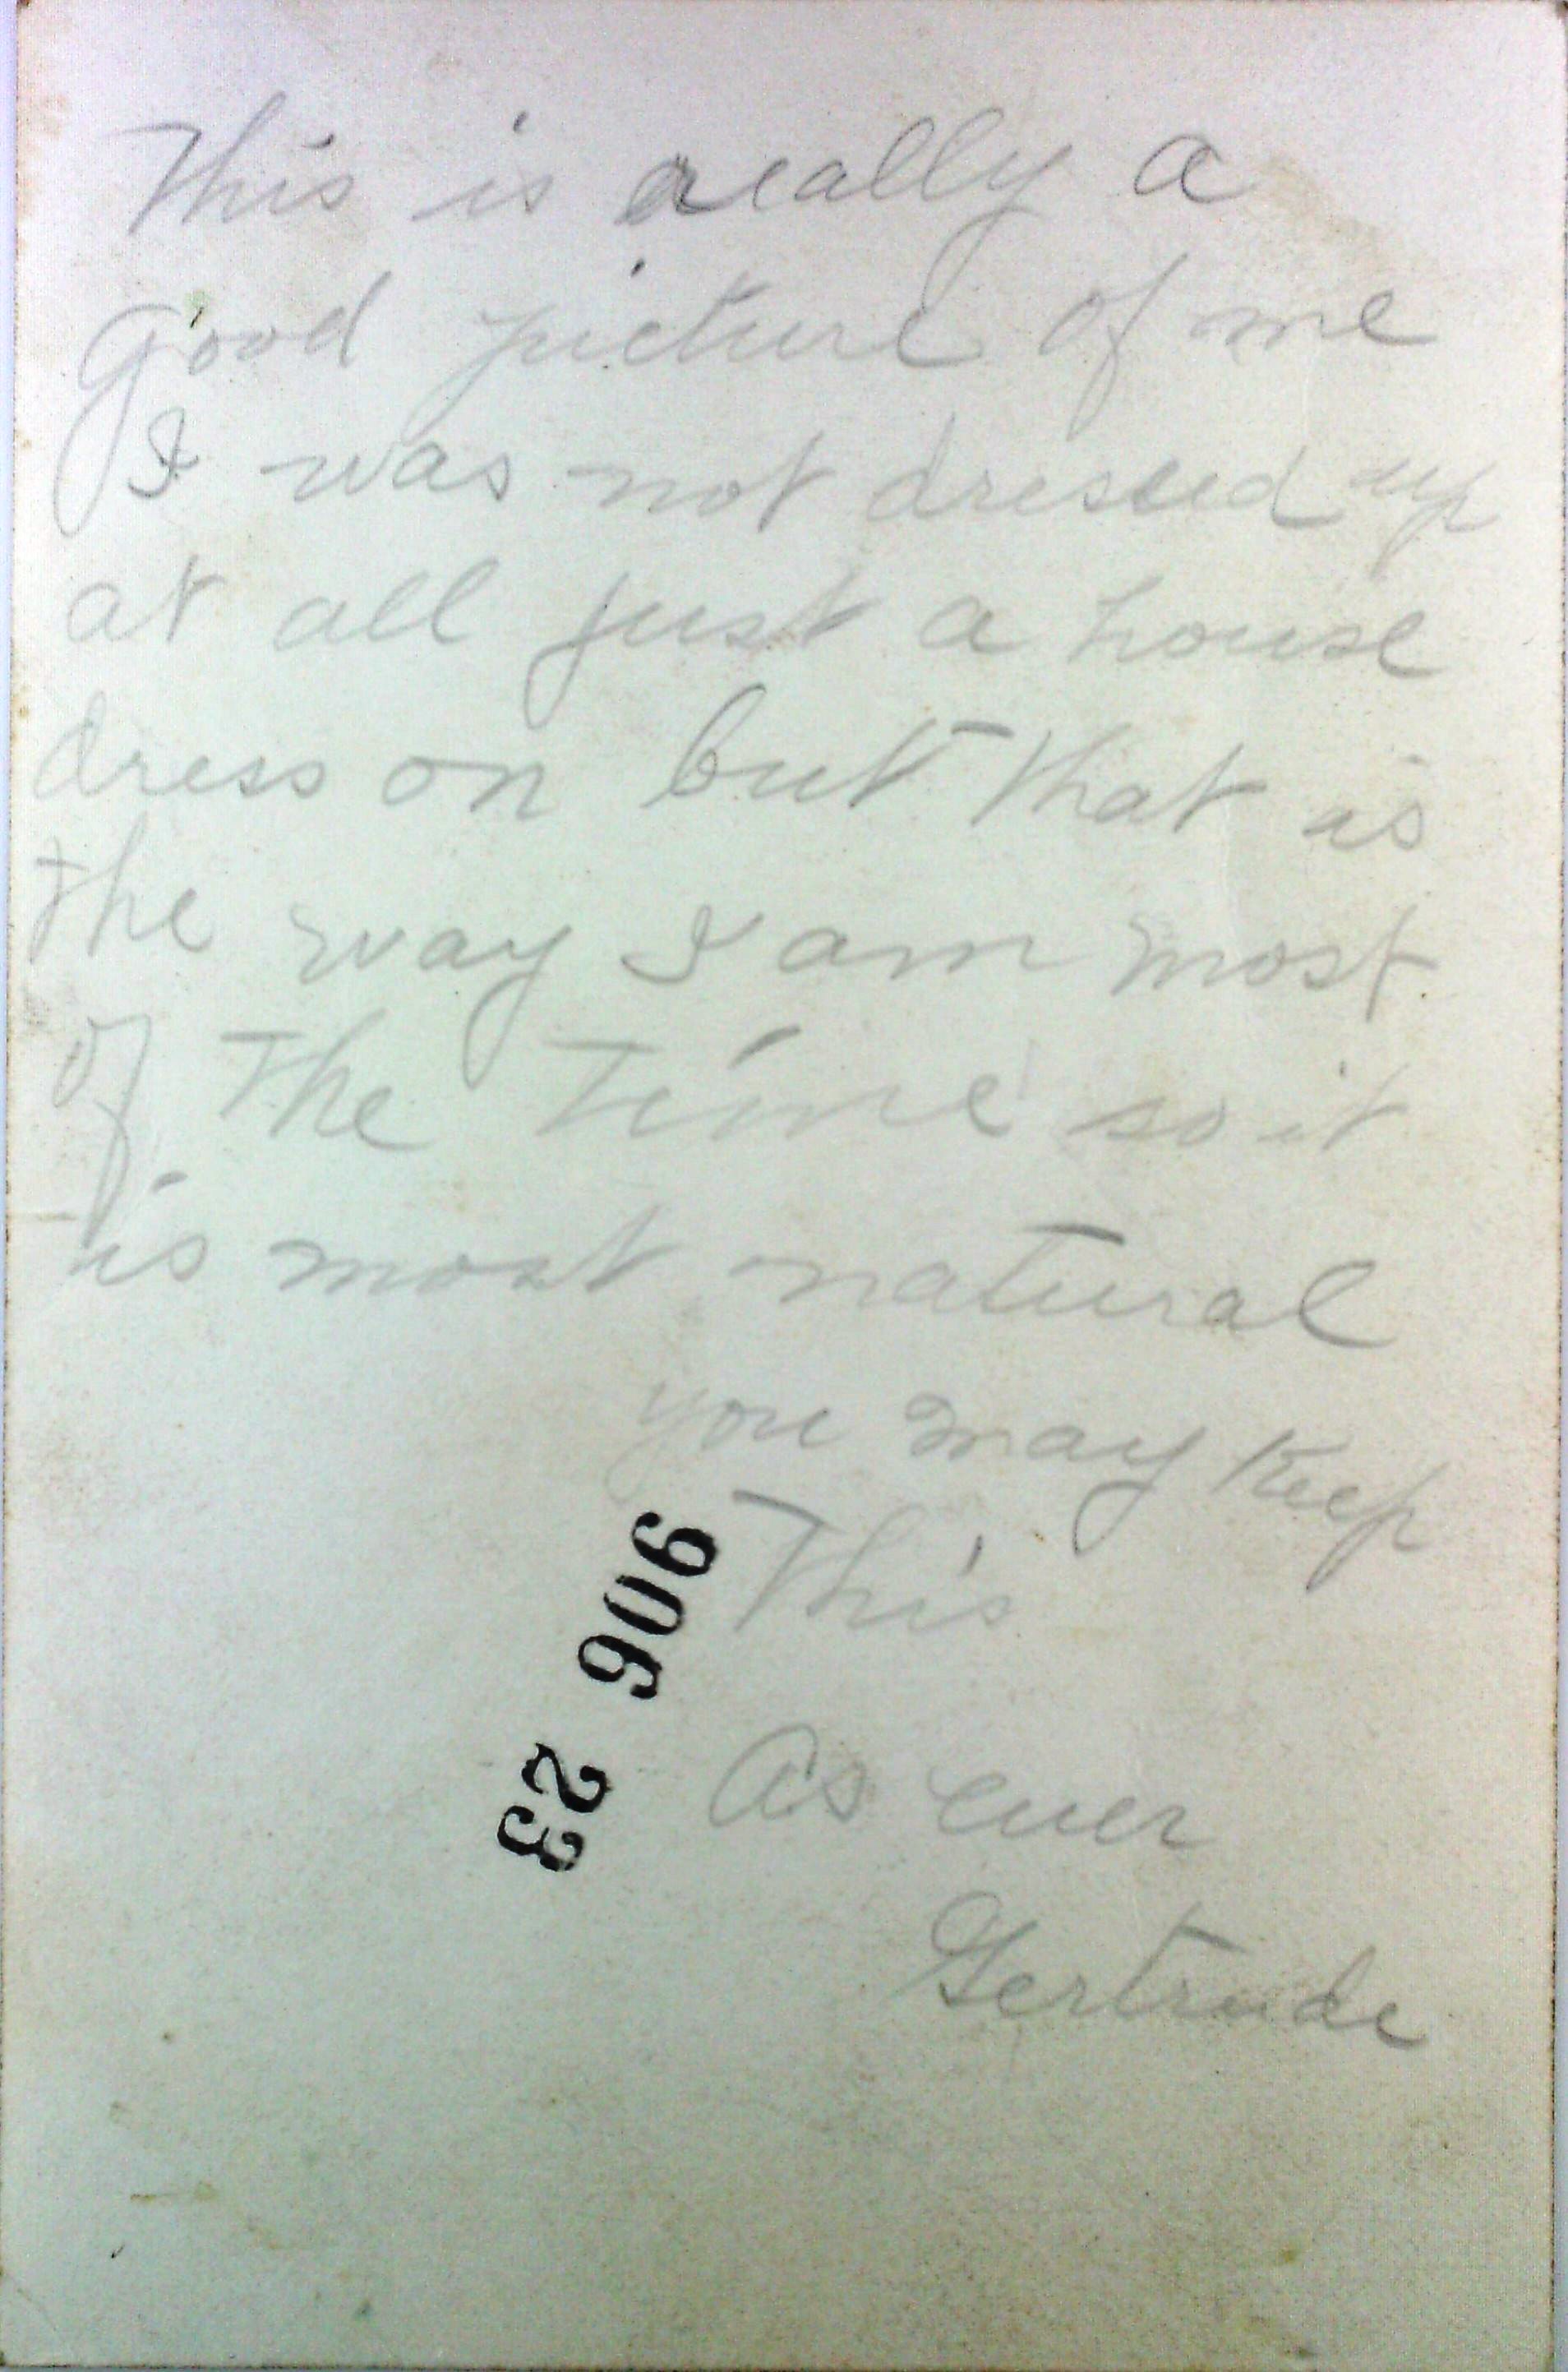 This is really a
good picture of me
I was not dressed up
at all just a house
dress on but that is
the way I am most
of the time so it
is most natural
you may keep
This
As ever
Gertrude
906 23